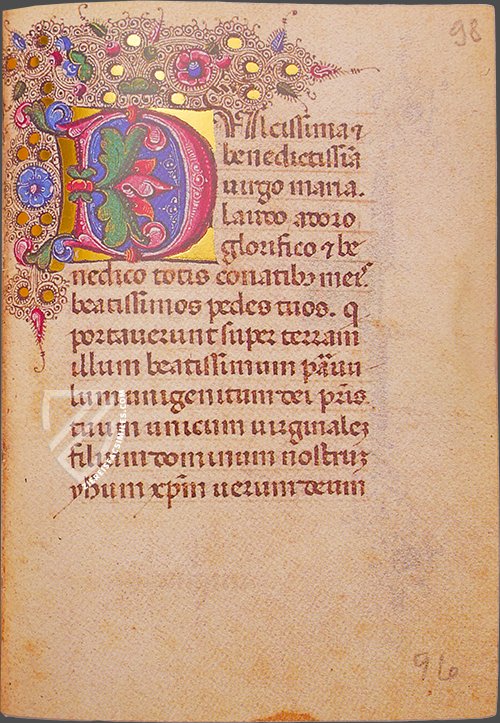 98
Dulcissima ⁊
benedictissīa
uirgo maria.
laudo adoro
glorifico ⁊ be
nedico totis conatibꝫ meis̄
beatissimos pedes tuos. q
portauerunt super terram
illum beatissimum paruu
lum unigenitum dei pr̄is
tuum unicum uirginaleꝫ
filium dominum nostruꝫ
yhum xp̄m uerum deum
96